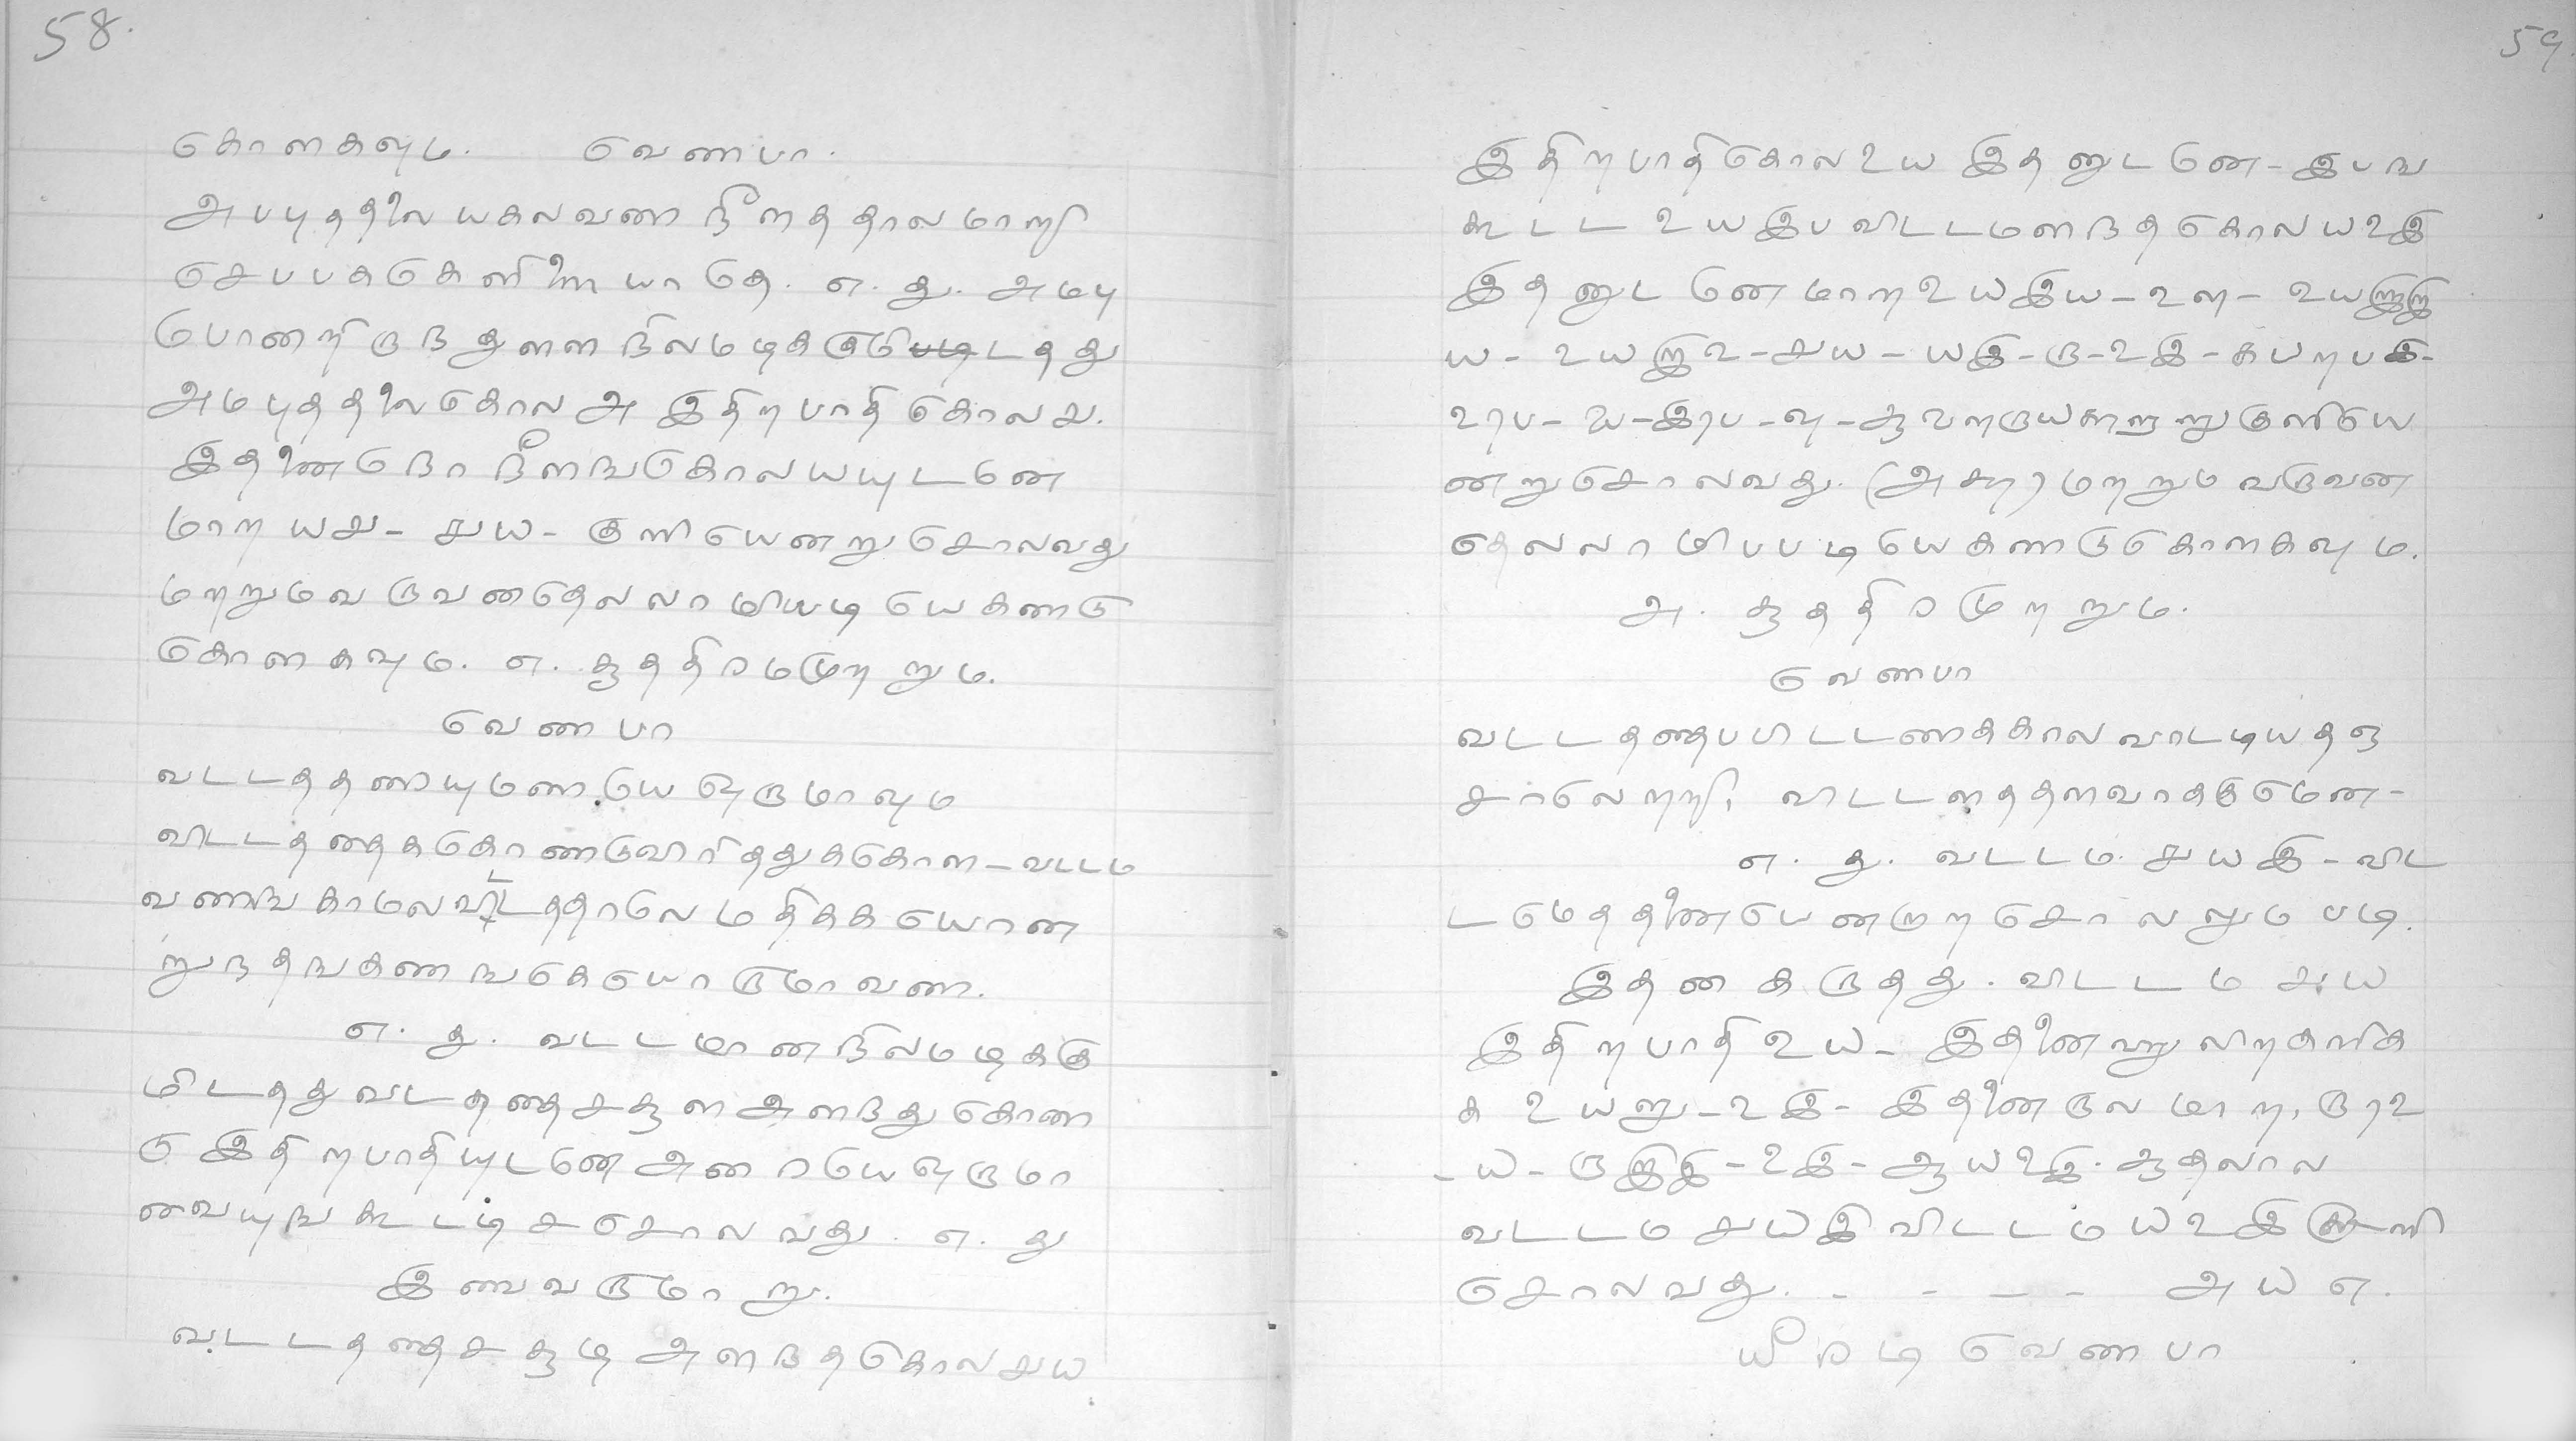 58.
கொளகவும. வெணபா.
அபபுததலை யகலவண நீளத தாலமாறி
செபபககெளிணை யாதெ. எ. து. அமபு
பொனறிருநதுளள நிலமடிககுமிடதது
அமபுததலைகொல அ இதிறபாதி கொலச.
இதனைநெர நீளஙகொலயயுடனே
மாற யச - சுய - குளியெனறுசொலவது
மறறுமவருவனதெலலா மியடியெகணடு
கொளகவும. எ. சூததிரமமுறறும.
வெணபா
வடடததணாயுமணாயெ வொருமாவும
விடடததைககொணடுவிரிததுககொள - வடடம
வணஙகாமலவிடடததாலெ மதிககயொன
றுநதஙகணஙகெயொருமாவண.
எ. து. வடடமானநிலமடிககு
மிடதது வடடததைசசூள அளநதுகொண
டு இதிறபாதியுடனே அரையெவொருமா
வையுஙகூடடிசசொலவது. எ. து
இவைவருமாறு.
வடடததைசசூடி அளநதகொலசுய
59
இதிறபாதிகொல உய இதனுடனே - இபங
கூடட உய இப விடடமளநதகொலயஉஇ
இதனுடனேமாற உய இய - உள - உயஇஇ
ய - உயஇஉ - சுய - யஇ - ரு - உஇ - கபறபஇ -
உரப - ய - இரப - வு - ஆவறருயளறறுகுளியெ
னறுசொலவது. (அசு) மறறும வருவன
தெலலாமிபபடியெகணடுகொளகவும.
அ. சூததிரமுறறும.
வெணபா
வடடததைபபிடடணககால வாடடியதஞ
சாலெறறி, விடடளததளவாககுமென -
எ. து. வடடம. சுயஇ - விட
டமெததனையெனருறசொலலுமபடி.
இதனகருதது. விடடம சுய
இதிறபாதி உய - இதனைவறுவிறகளிக
க உயறு - உஇ - இதனைருலமாற, ருரஉ
- ய - ருஇஇ - உஇ - ஆயஉஇ. ஆதலால
வடடம சுயஇ விடடம யஉஇ குளி
சொலவது. - - - - அயஎ.
யீரடி வெணபா